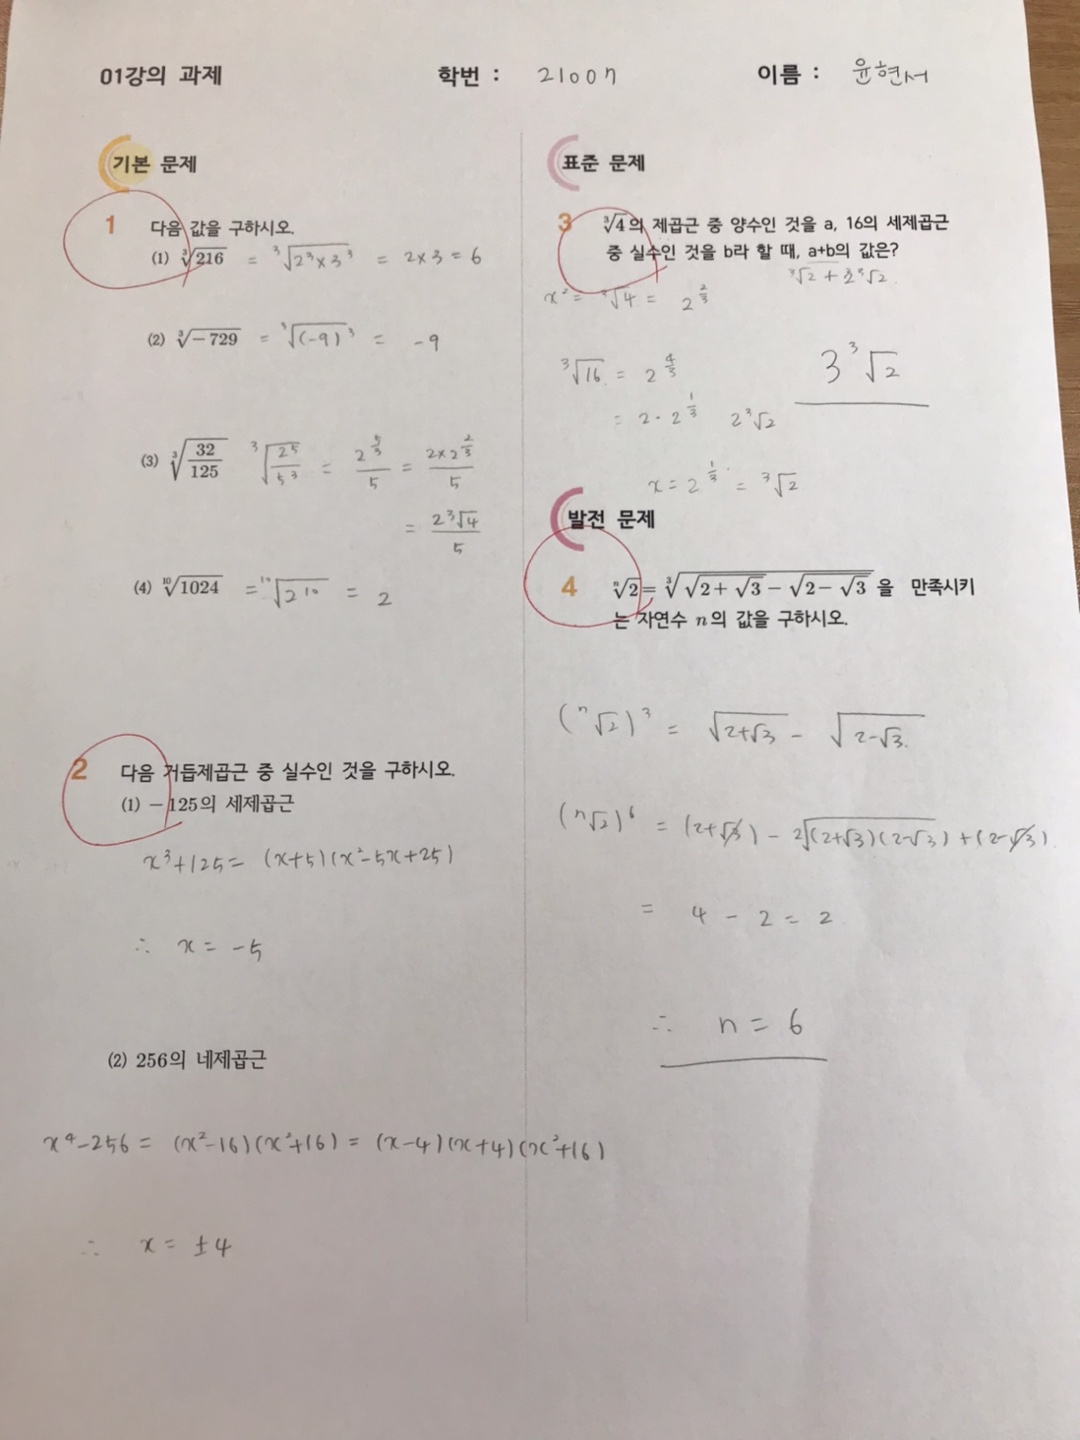 01강의 과제 학번 : 21007 이름 : 윤현서
기본 문제
1 다음 값을 구하시오.
(1) ∛216 = ∛(2³×3³) = 2×3 = 6
(2) ∛-729 = ∛(-9)³ = -9
(3) ∛(32/125) ∛(2⁵/5³) = 2^(5/3)/5 = 2×2^(2/3)/5
= 2∛4/5
(4) ¹⁰√1024 = ¹⁰√2¹⁰ = 2
2 다음 거듭제곱근 중 실수인 것을 구하시오.
(1) -125의 세제곱근
x³+125 = (x+5)(x²-5x+25)
∴ x = -5
(2) 256의 네제곱근
x⁴-256 = (x²-16)(x²+16) = (x-4)(x+4)(x²+16)
∴ x = ±4
표준 문제
3 ∛4의 제곱근 중 양수인 것을 a, 16의 세제곱근
중 실수인 것을 b라 할 때, a+b의 값은?
∛2 + 2∛2
x² = ∛4 = 2^(2/3)
∛16 = 2^(4/3)
3∛2
= 2·2^(1/3) 2∛2
x = 2^(1/3) = ∛2
발전 문제
4 ⁿ√2 = ∛(√(2+√3) - √(2-√3)) 을 만족시키
는 자연수 n의 값을 구하시오.
(ⁿ√2)³ = √(2+√3) - √(2-√3)
(ⁿ√2)⁶ = (2+√3) - 2√((2+√3)(2-√3)) + (2-√3)
= 4 - 2 = 2
∴ n = 6